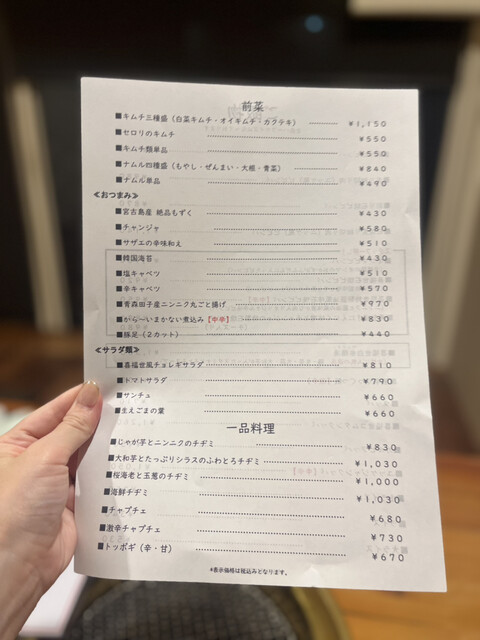 前菜
■キムチ三種盛（白菜キムチ・オイキムチ・カクテキ） ¥1,150
■セロリのキムチ ¥550
■キムチ類単品 ¥550
■ナムル四種盛（もやし・ぜんまい・大根・青菜） ¥840
■ナムル単品 ¥490
≪おつまみ≫
■宮古島産 絶品もずく ¥430
■チャンジャ ¥580
■サザエの辛味和え ¥510
■韓国海苔 ¥430
■塩キャベツ ¥510
■辛キャベツ ¥570
■青森田子産ニンニク丸ごと揚げ ¥970
■から～いまかない煮込み【中辛】 ¥830
■豚足（２カット） ¥440
≪サラダ類≫
■喜福世風チョレギサラダ ¥810
■トマトサラダ ¥790
■サンチュ ¥660
■生えごまの葉 ¥660
一品料理
■じゃが芋とニンニクのチヂミ ¥830
■大和芋とたっぷりシラスのふわとろチヂミ ¥1,030
■桜海老と玉葱のチヂミ ¥1,000
■海鮮チヂミ ¥1,030
■チャプチェ ¥680
■激辛チャプチェ ¥730
■トッポギ（辛・甘） ¥670
*表示価格は税込みとなります。